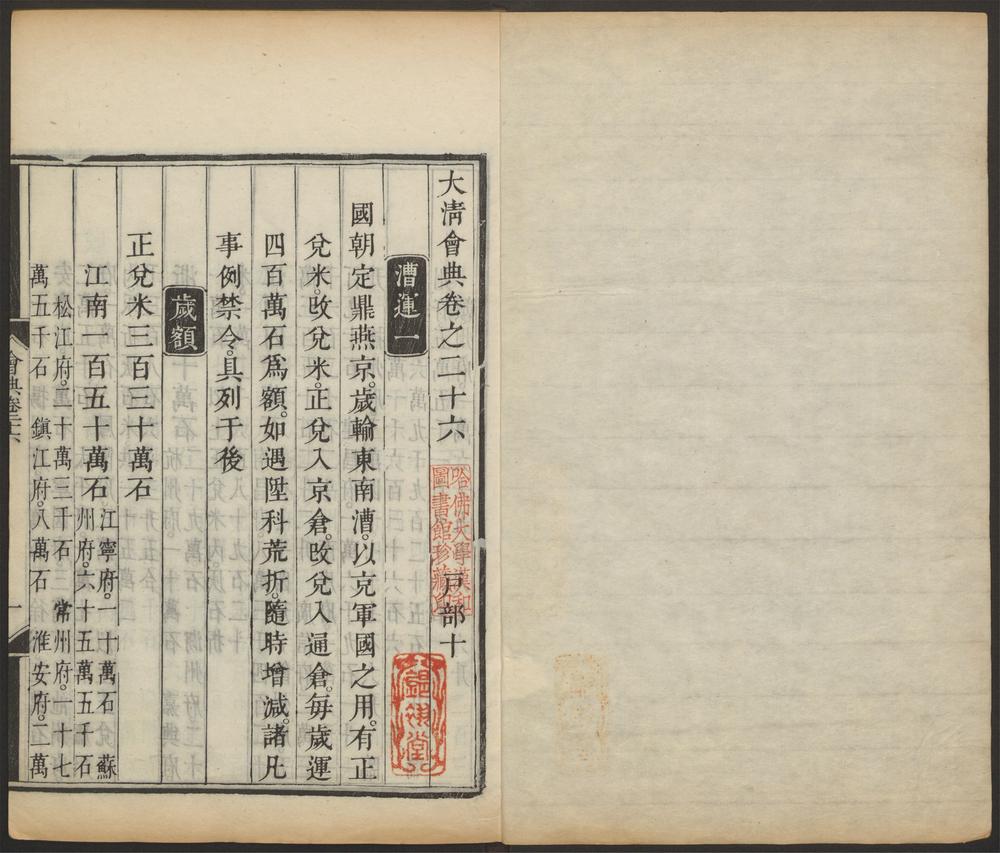 大淸會典卷之二十六 戸部十
哈佛大學漢和
圖書館珍藏印
漕運一
國朝定鼎燕京。歲輸東南漕。以充軍國之用。有正
兌米。改兌米。正兌入京倉。改兌入通倉。每歲運
四百萬石爲額。如遇陞科荒折。隨時增減。諸凡
事例禁令。具列于後
歲額
正兌米三百三十萬石
江南一百五十萬石
江寧府。一十萬石 蘇
州府。六十五萬五千石
松江府。二十萬三千石。常州府。一十七
萬五千石 鎮江府。八萬石 淮安府。二萬
會典卷二十六
一